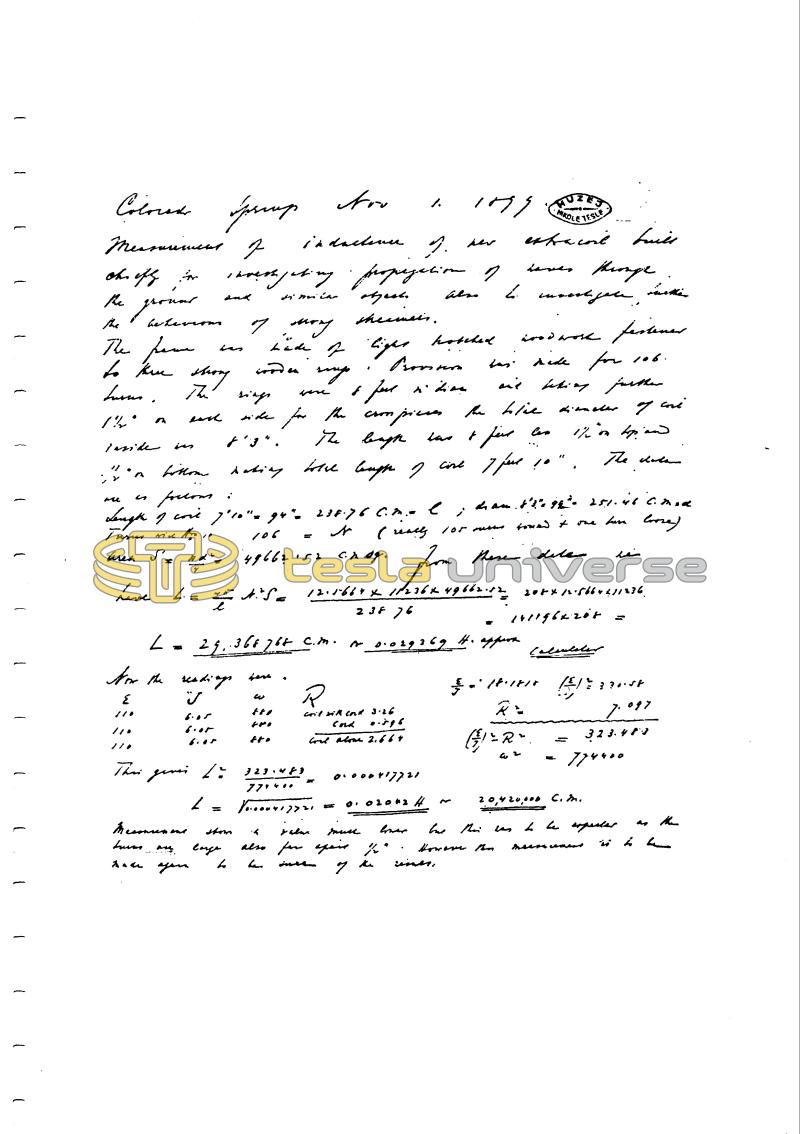 Colorado Springs Nov 1. 1899.
MUZEJ NIKOLE TESLE
Measurement of inductance of new extra coil built
chiefly for investigating propagation of waves through
the ground and similar objects also to investigate further
the behaviour of strong streamers.
The frame was made of light notched woodwork fastened
to three strong wooden rings. Provision was made for 106
turns. The rings were 8 feet in diam and taking further
1 1/2" on each side for the crosspieces the total diameter of coil
inside was 8'3". The length was 8 feet less 1 1/2" on top and
1/2" on bottom making total length of coil 7 feet 10". The data
are as follows:
Length of coil 7'10" = 94" = 238.76 C.M. = l ; diam. 8'3" = 99" = 251.46 C.M. = d
Turns 106 = N (really 105 turns wound + one turn loose)
area S = πd²/4 = 49662.52 C.M. sq. From these data we
tesla universe
have L = 4π/l N²S = 12.5664 × 11236 × 49662.52 / 238.76 = 208 × 12.5664 × 11236
= 141196 × 208 =
L = 29,368,768 C.M. or 0.029369 H. approx
Calculated
Now the readings were.
E J ω R
110 6.05 880 coil with cord 3.26
110 6.05 880 cord 0.596
110 6.05 880 coil alone 2.664
E/J = 18.1818 (E/J)² = 330.58
R² = 7.097
(E/J)² - R² = 323.483
ω² = 774400
This gives L² = 323.483/774400 = 0.000417721
L = √0.000417721 = 0.02042 H or 20,420,000 C.M.
Measurement shows a value much lower but this was to be expected as the
turns are large also far apart 1/2". However this measurement is to be
made again to be sure of the result.